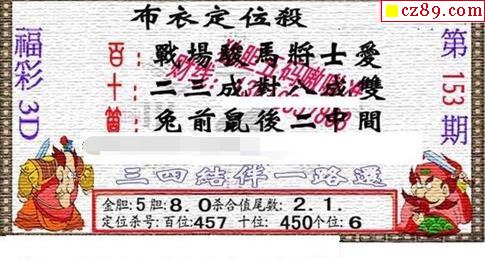 cz89.com
布衣定位殺
福彩3D
第153期
百:戰場駿馬將士愛
十:二三成對六成雙
個:兔前鼠後二中間
三四結伴一路遥
金胆:5胆:8.0杀合值尾数:2.1.
定位杀号:百位:457 十位:450个位:6